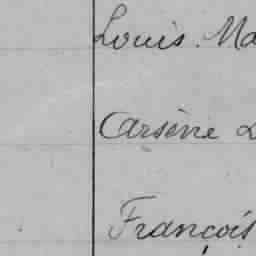 Louis. Ma
Arsène L
François